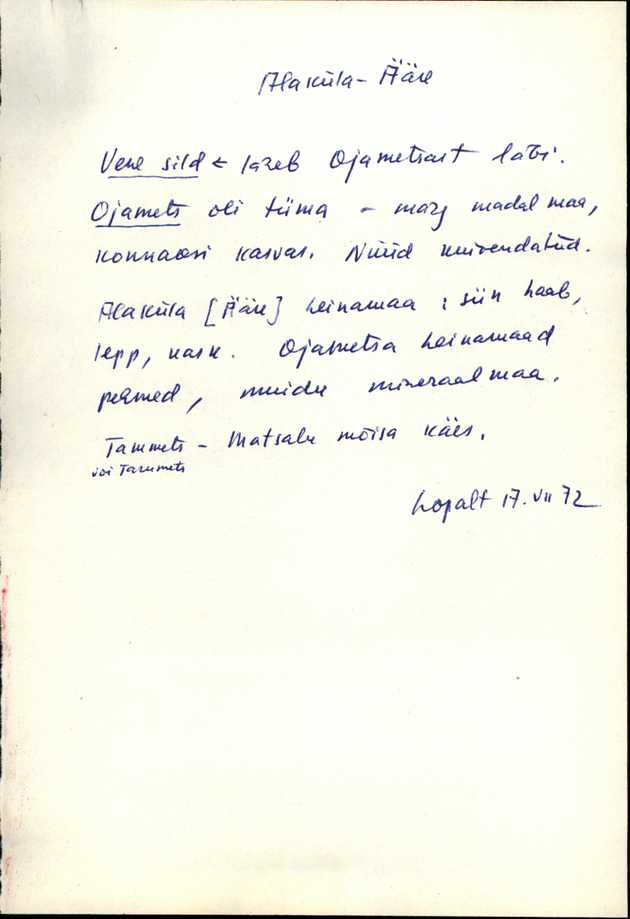 Alaküla - Ääre
Vene sild ← läheb Ojametsast läbi.
Ojamets oli tüma - märg madal maa,
konnaosi kasvas. Nüüd kuivendatud.
Alaküla [Ääre] heinamaa : siin haab,
lepp, kask. Ojametsa heinamaad
pehmed, muidu mineraalmaa.
Tammets - Matsalu mõisa käes.
või Tarumets
17.VII 72